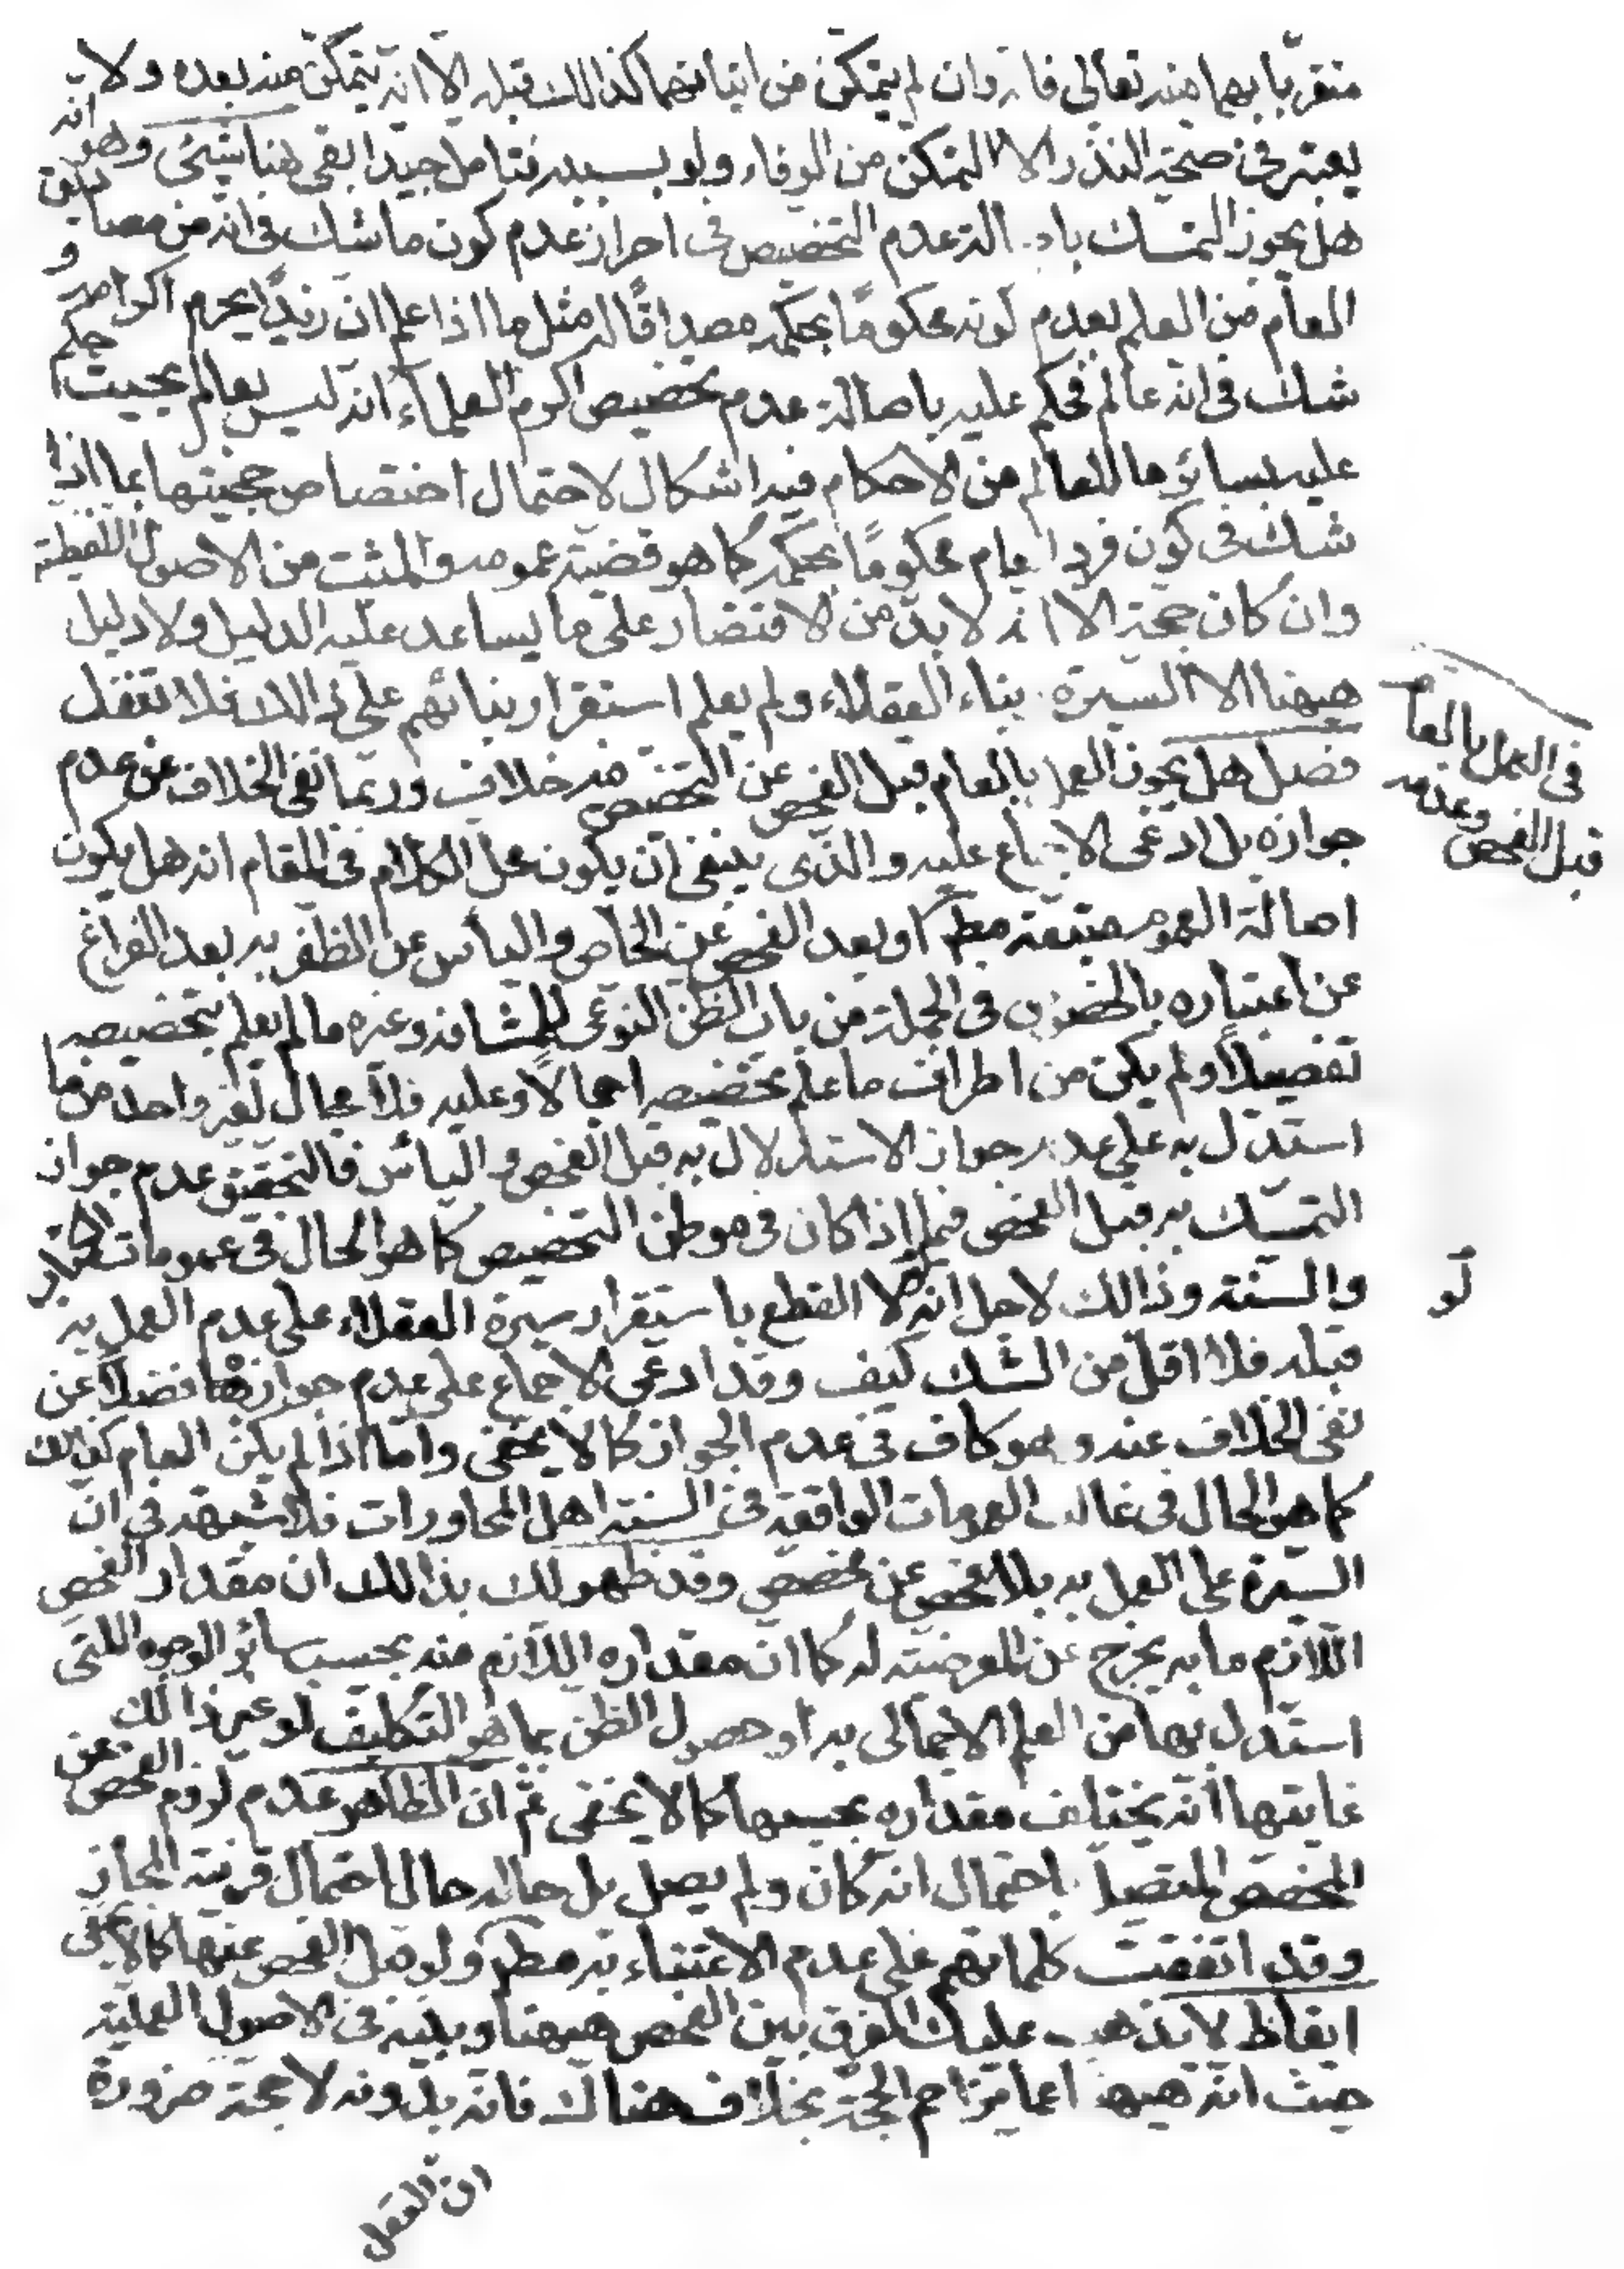 متقربا بهما منه تعالى فانه وان لم يتمكن من اتيانهما كذالك قبله الا انه يتمكن منه بعده ولا
يعتبر في صحة النذر الا التمكن من الوفاء ولو بسببه فتامل جيدا بقى هنا شيئ وهو انه
هل يجوز التمسك باصالة عدم التخصيص في احراز عدم كون ما شك في انه من مصاديق
العام من العلم بعدم كونه محكوما بحكمه مصداقا له مثل ما اذا علم ان زيدا يحرم اكرامه و
شك في انه عالم فحكم عليه باصالة عدم تخصيص اكرم العلماء انه ليس بعالم بحيث حكم
عليه بسائر ما للعالم من الاحكام فيه اشكال لاحتمال اختصاص حجيتها بما اذا
شك في كون فرد العام محكوما بحكمه كما هو قضية عمومه والمثبت من الاصول اللفظية
وان كان حجة الا انه لا بد من الاقتصار على ما يساعد عليه الدليل ولا دليل
هيهنا الا السيرة وبناء العقلاء ولم يعلم استقرار بنائهم على ذالك فلا تغفل
فصل هل يجوز العمل بالعام قبل الفحص عن المخصص فيه خلاف وربما نفى الخلاف عن عدم
جوازه بل ادعى الاجماع عليه والذى ينبغى ان يكون محل الكلام في المقام انه هل يكون
اصالة العموم متبعة مط او بعد الفحص عن الخاص والياس عن الظفر به بعد الفراغ
عن اعتباره بالخصوص في الجملة من باب الظن النوعى للمشافه وغيره ما لم يعلم بتخصيصه
تفصيلا ولم يكن من اطراف ما علم تخصيصه اجمالا وعليه فلا مجال لغير واحد من ما
استدل به على عدم جواز الاستدلال به قبل الفحص والياس فالتحقيق عدم جواز
التمسك به قبل الفحص فيما اذا كان في موطن التخصيص كما هو الحال في عمومات الكتاب
والسنة وذالك لاجل انه لو لا القطع باستقرار سيرة العقلاء على عدم العمل به
قبله فلا اقل من الشك كيف وقد ادعى الاجماع على عدم جوازه فضلا عن
نفى الخلاف عنه وهو كاف في عدم الجواز كما لا يخفى واما اذا لم يكن العام كذالك
كما هو الحال في غالب العمومات الواقعة في السنة اهل المحاورات فلا شبهة في ان
السيرة على العمل به بلا فحص عن مخصص وقد ظهر لك بذالك ان مقدار الفحص
اللازم ما به يخرج عن المعرضية له كما ان مقداره اللازم منه بحسب سائر الوجوه اللتى
استدل بها من العلم الاجمالى به او حصول الظن بما هو التكليف او غير ذالك
غايتها انه يختلف مقداره بحسبها كما لا يخفى ثم ان الظاهر عدم لزوم الفحص عن
المخصص المتصل باحتمال انه كان ولم يصل بل حاله حال احتمال قرينة المجاز
وقد اتفقت كلماتهم على عدم الاعتناء به مط ولو قبل الفحص عنها كما لا يخفى
ايقاظ لا يذهب عليك الفرق بين الفحص هيهنا وبينه في الاصول العملية
حيث انه هيهنا عما يزاحم الحجة بخلاف هناك فانه بدونه لا حجة ضرورة
ان العقل
في العمل بالعام
قبل الفحص وعدمه
لو